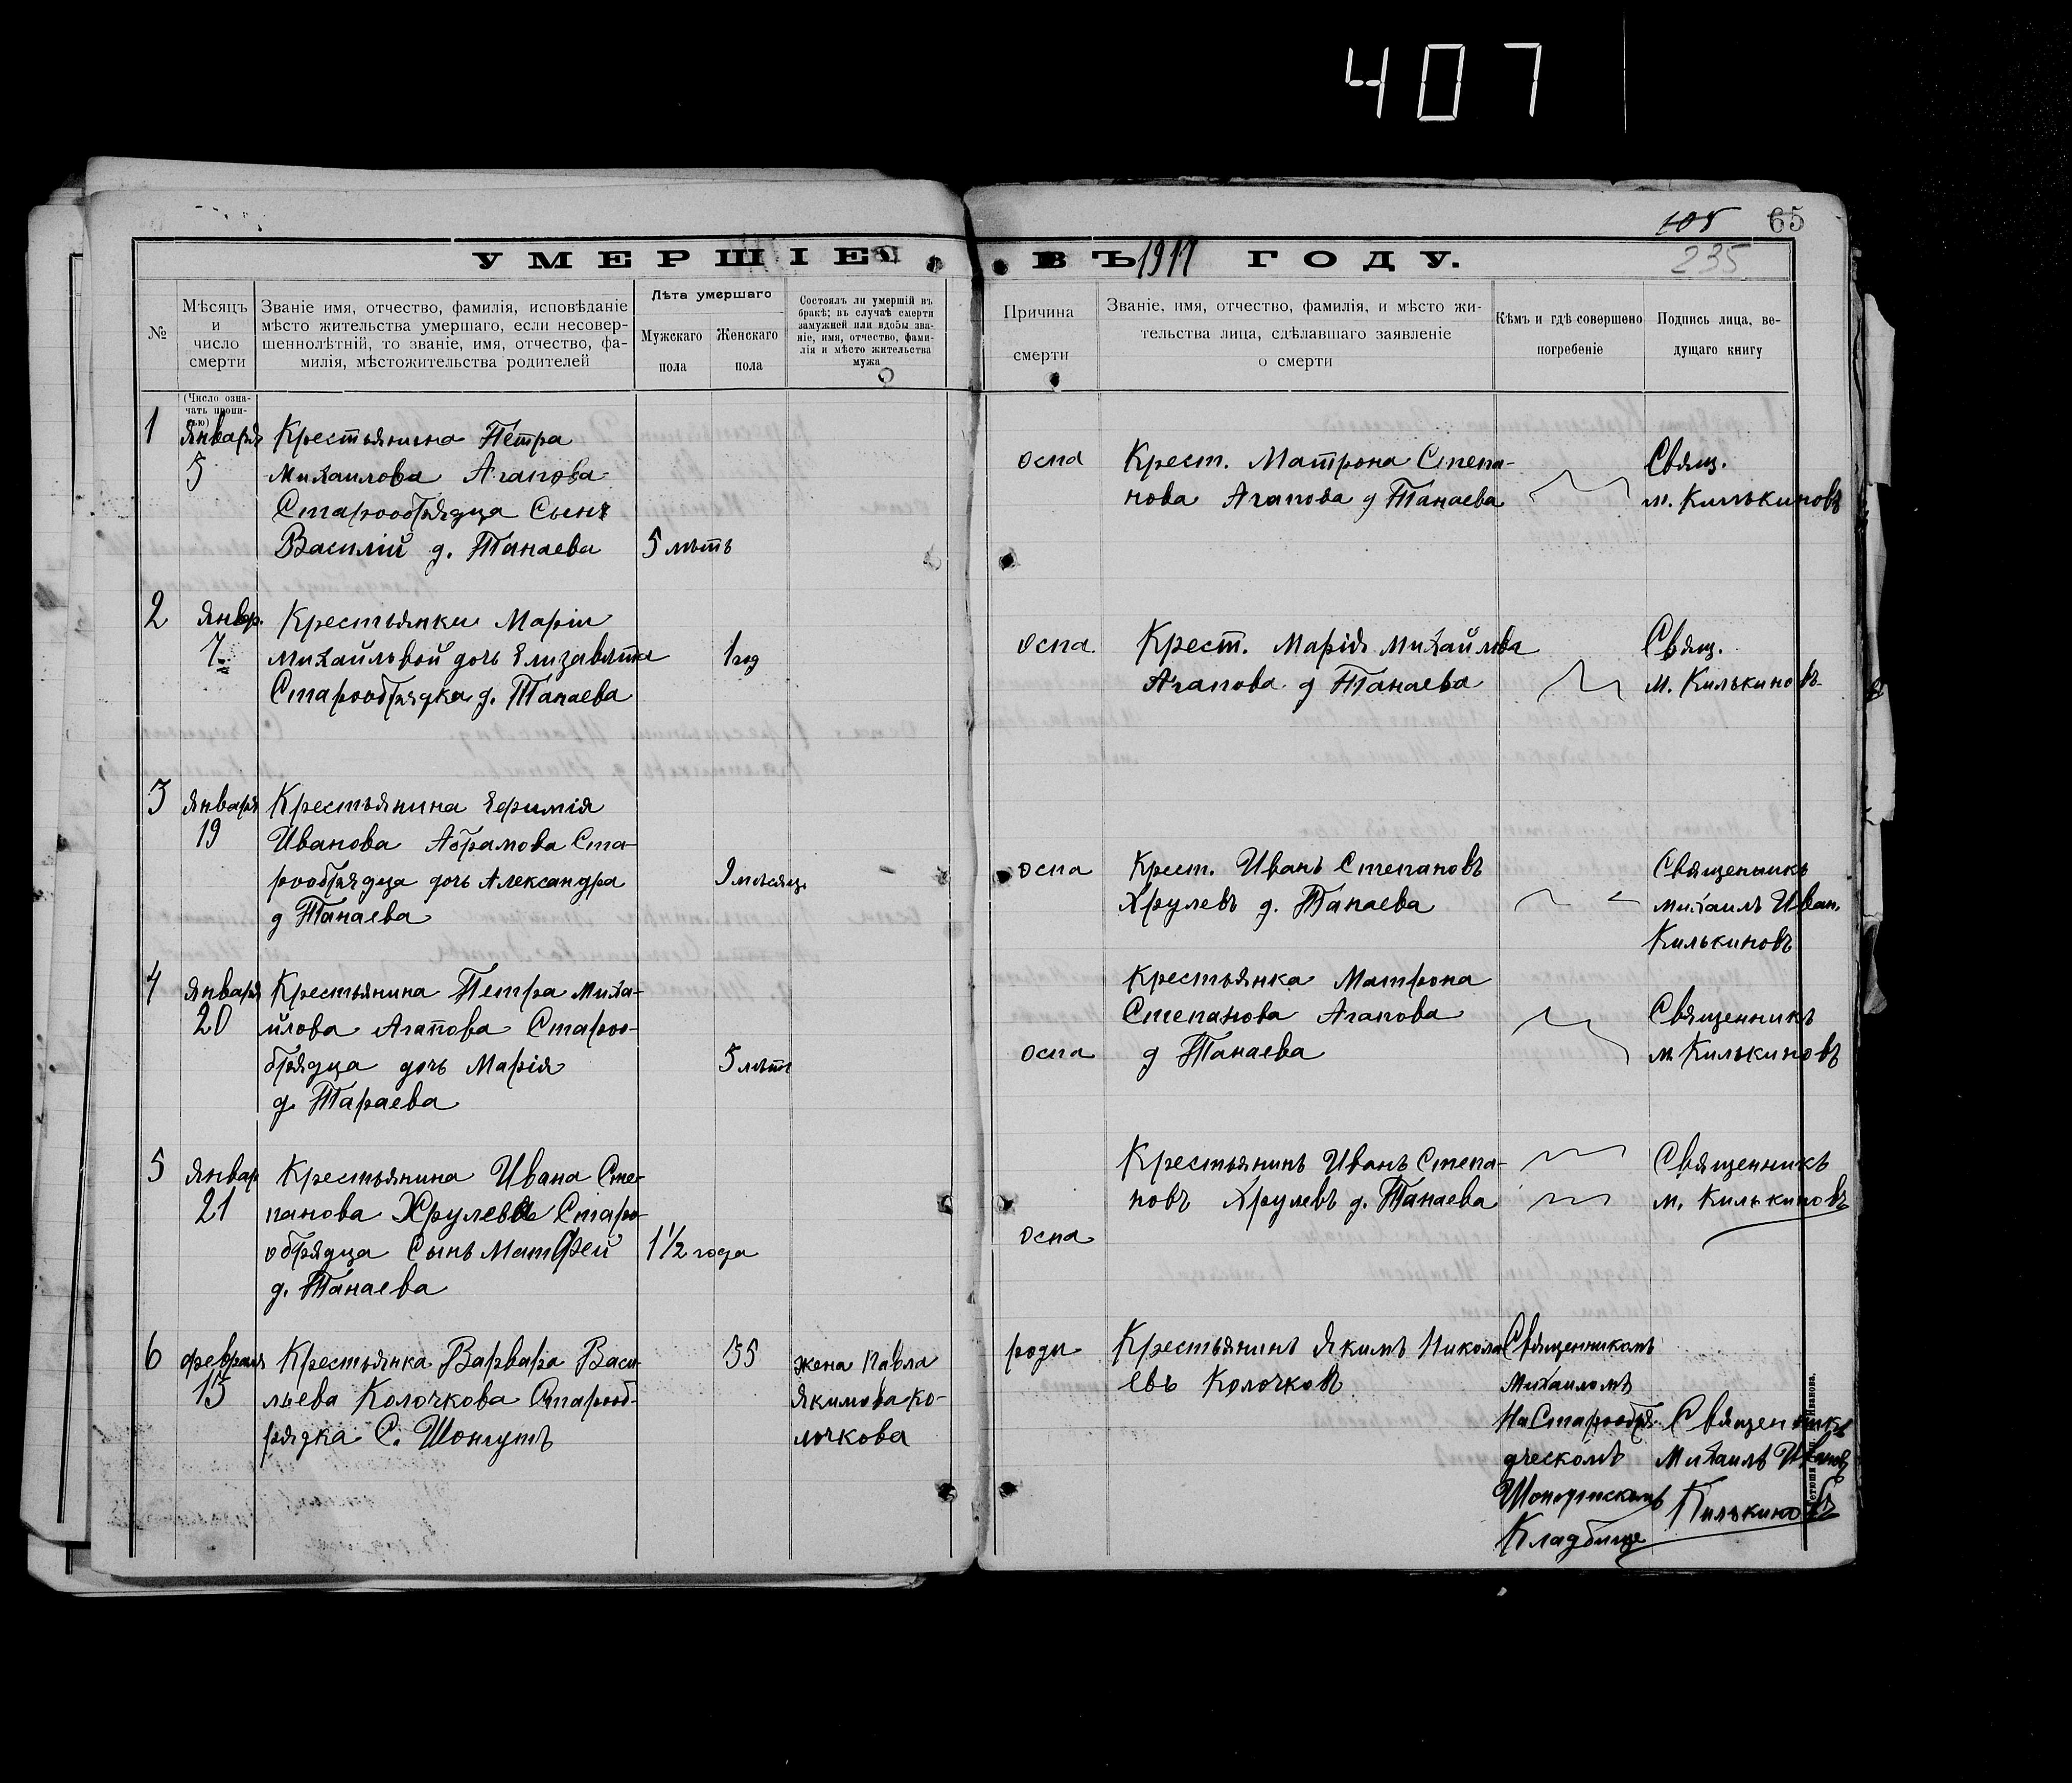 407
105 65
УМЕРШІЕ ВЪ 1917 ГОДУ.
235
№
Мѣсяцъ и число смерти
Званіе имя, отчество, фамилія, исповѣданіе
мѣсто жительства умершаго, если несовер-
шеннолѣтній, то званіе, имя, отчество, фа-
милія, мѣстожительства родителей
Лѣта умершаго
Мужскаго пола
Женскаго пола
Состоялъ ли умершій въ
бракѣ; въ случаѣ смерти
замужней или вдовы зва-
ніе, имя, отчество, фами-
лія и мѣсто жительства
мужа
Причина смерти
Званіе, имя, отчество, фамилія, и мѣсто жи-
тельства лица, сдѣлавшаго заявленіе
о смерти
Кѣмъ и гдѣ совершено
погребеніе
Подпись лица, ве-
дущаго книгу
(Число озна-
чать пропи-
сью)
1 Января 5
Крестьянина Петра
Михаилова Агапова
Старообрядца Сынъ
Василій д. Танаева
5 лѣтъ
оспа
Крест. Матрона Степа-
нова Агапова д Танаева
Свящ.
м. Килькиновъ
2 Январ. 7
Крестьянки Маріи
Михайльвой дочь Елизавѣта
Старообрядка д. Танаева
1 год
оспа
Крест. Марія Михайлова
Агапова д Танаева
Свящ.
М. Килькиновъ
3 Января 19
Крестьянина Ефимія
Иванова Абрамова Ста-
рообрядца дочь Александра
д Танаева
9 мѣсяц.
оспа
Крест. Иванъ Степановъ
Хрулевъ д. Танаева
Священникъ
михаилъ Иван.
Килькиновъ
4 Января 20
Крестьянина Петра Миха-
йлова Агапова Староо-
брядца дочь Марія
д. Тараева
5 лѣтъ
оспа
Крестьянка Матрона
Степанова Агапова
д Танаева
Священникъ
м Килькиновъ
5 Январ 21
Крестьянина Ивана Сте-
панова Хрулева Старо-
обрядца Сынъ Матфей
д. Танаева
1 1/2 года
оспа
Крестьянинъ Иванъ Степа-
новъ Хрулевъ д. Танаева
Священникъ
м. Килькиновъ
6 февраля 15
Крестьянка Варвара Васи
льева Колочкова Старооб-
рядка С. Шонгутъ
55
жена Павла
Якимова Ко-
лочкова
роди
Крестьянинъ Якимъ Никола
евъ Колочковъ
Священникомъ
Михаиломъ
На Старообря-
дческомъ
Шонгутскомъ
Кладбище
Священникъ
Михаилъ Иванов
Килькиновъ